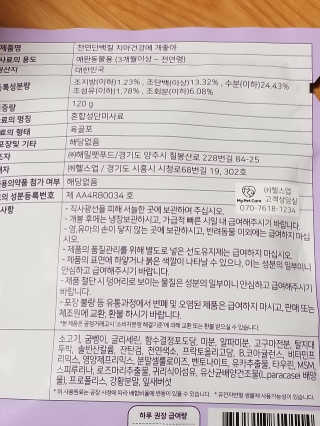 제품명 천연단백질 치아건강에 개좋아
사료의 용도 애완동물용 (3개월이상 ~ 전연령)
원산지 대한민국
등록성분량 조지방(이하)1.23%, 조단백(이상)13.32%, 수분(이하)24.43%
조섬유(이하)1.78%, 조회분(이하)6.08%
중량 120 g
사료의 명칭 혼합성단미사료
사료의 형태 육골포
포장및 기타 해당없음
㈜해일펫푸드/경기도 양주시 칠봉산로 228번길 64-25
㈜헬스업 / 경기도 시흥시 시청로68번길 19, 302호
동물용의약품 첨가 여부 해당없음
의 성분등록번호 제 AA4R80034 호
㈜헬스업
My Pet Care
고객상담실
070-7618-1234
사항 - 직사광선을 피해 서늘한 곳에 보관하여 주십시오.
- 개봉 후에는 냉장보관하시고, 가급적 빠른 시일 내 급여해주시기 바랍니다.
- 영.유아의 손이 닿지 않는 곳에 보관하시고, 반려동물 이외에는 급여하지 마십시오.
- 제품의 품질관리를 위해 별도로 넣은 선도유지제는 급여하지 마십시오.
- 제품의 표면에 하얗거나 붉은 색깔이 나타날 수 있으나, 이는 성분의 일부이니
안심하고 급여하시기 바랍니다.
- 제품 절단 시 덩어리로 보이는 물질은 성분의 일부이니 안심하고 급여해주시기
바랍니다.
- 포장 불량 등 유통과정에서 변폐 및 오염된 제품은 급여하지 마시고, 판매 또는
제조원에 교환, 환불 하시기 바랍니다.
*본 제품은 공정거래고시 '소비자분쟁 해결기준'에 의해 교환 또는 환불 받으실 수 있습니다.
소고기, 굴뼁이, 글리세린, 함수결정포도당, 미분, 알파미분, 고구마전분, 탈지대
두박, 솔빈산칼륨, 잔탄검, 천연색소, 프락토올리고당, B.코아귤런스, 비타민프
리믹스, 영양제프리믹스, 분말셀룰로이즈, 벤토나이트, 유카추출물, 타우린, MSM,
스피루리나, 로즈마리추출물, 귀리식이섬유, 유산균배양건조물(L.paracasei 배양
물), 프로폴리스, 강황분말, 잎새버섯
하루 권장 급여량